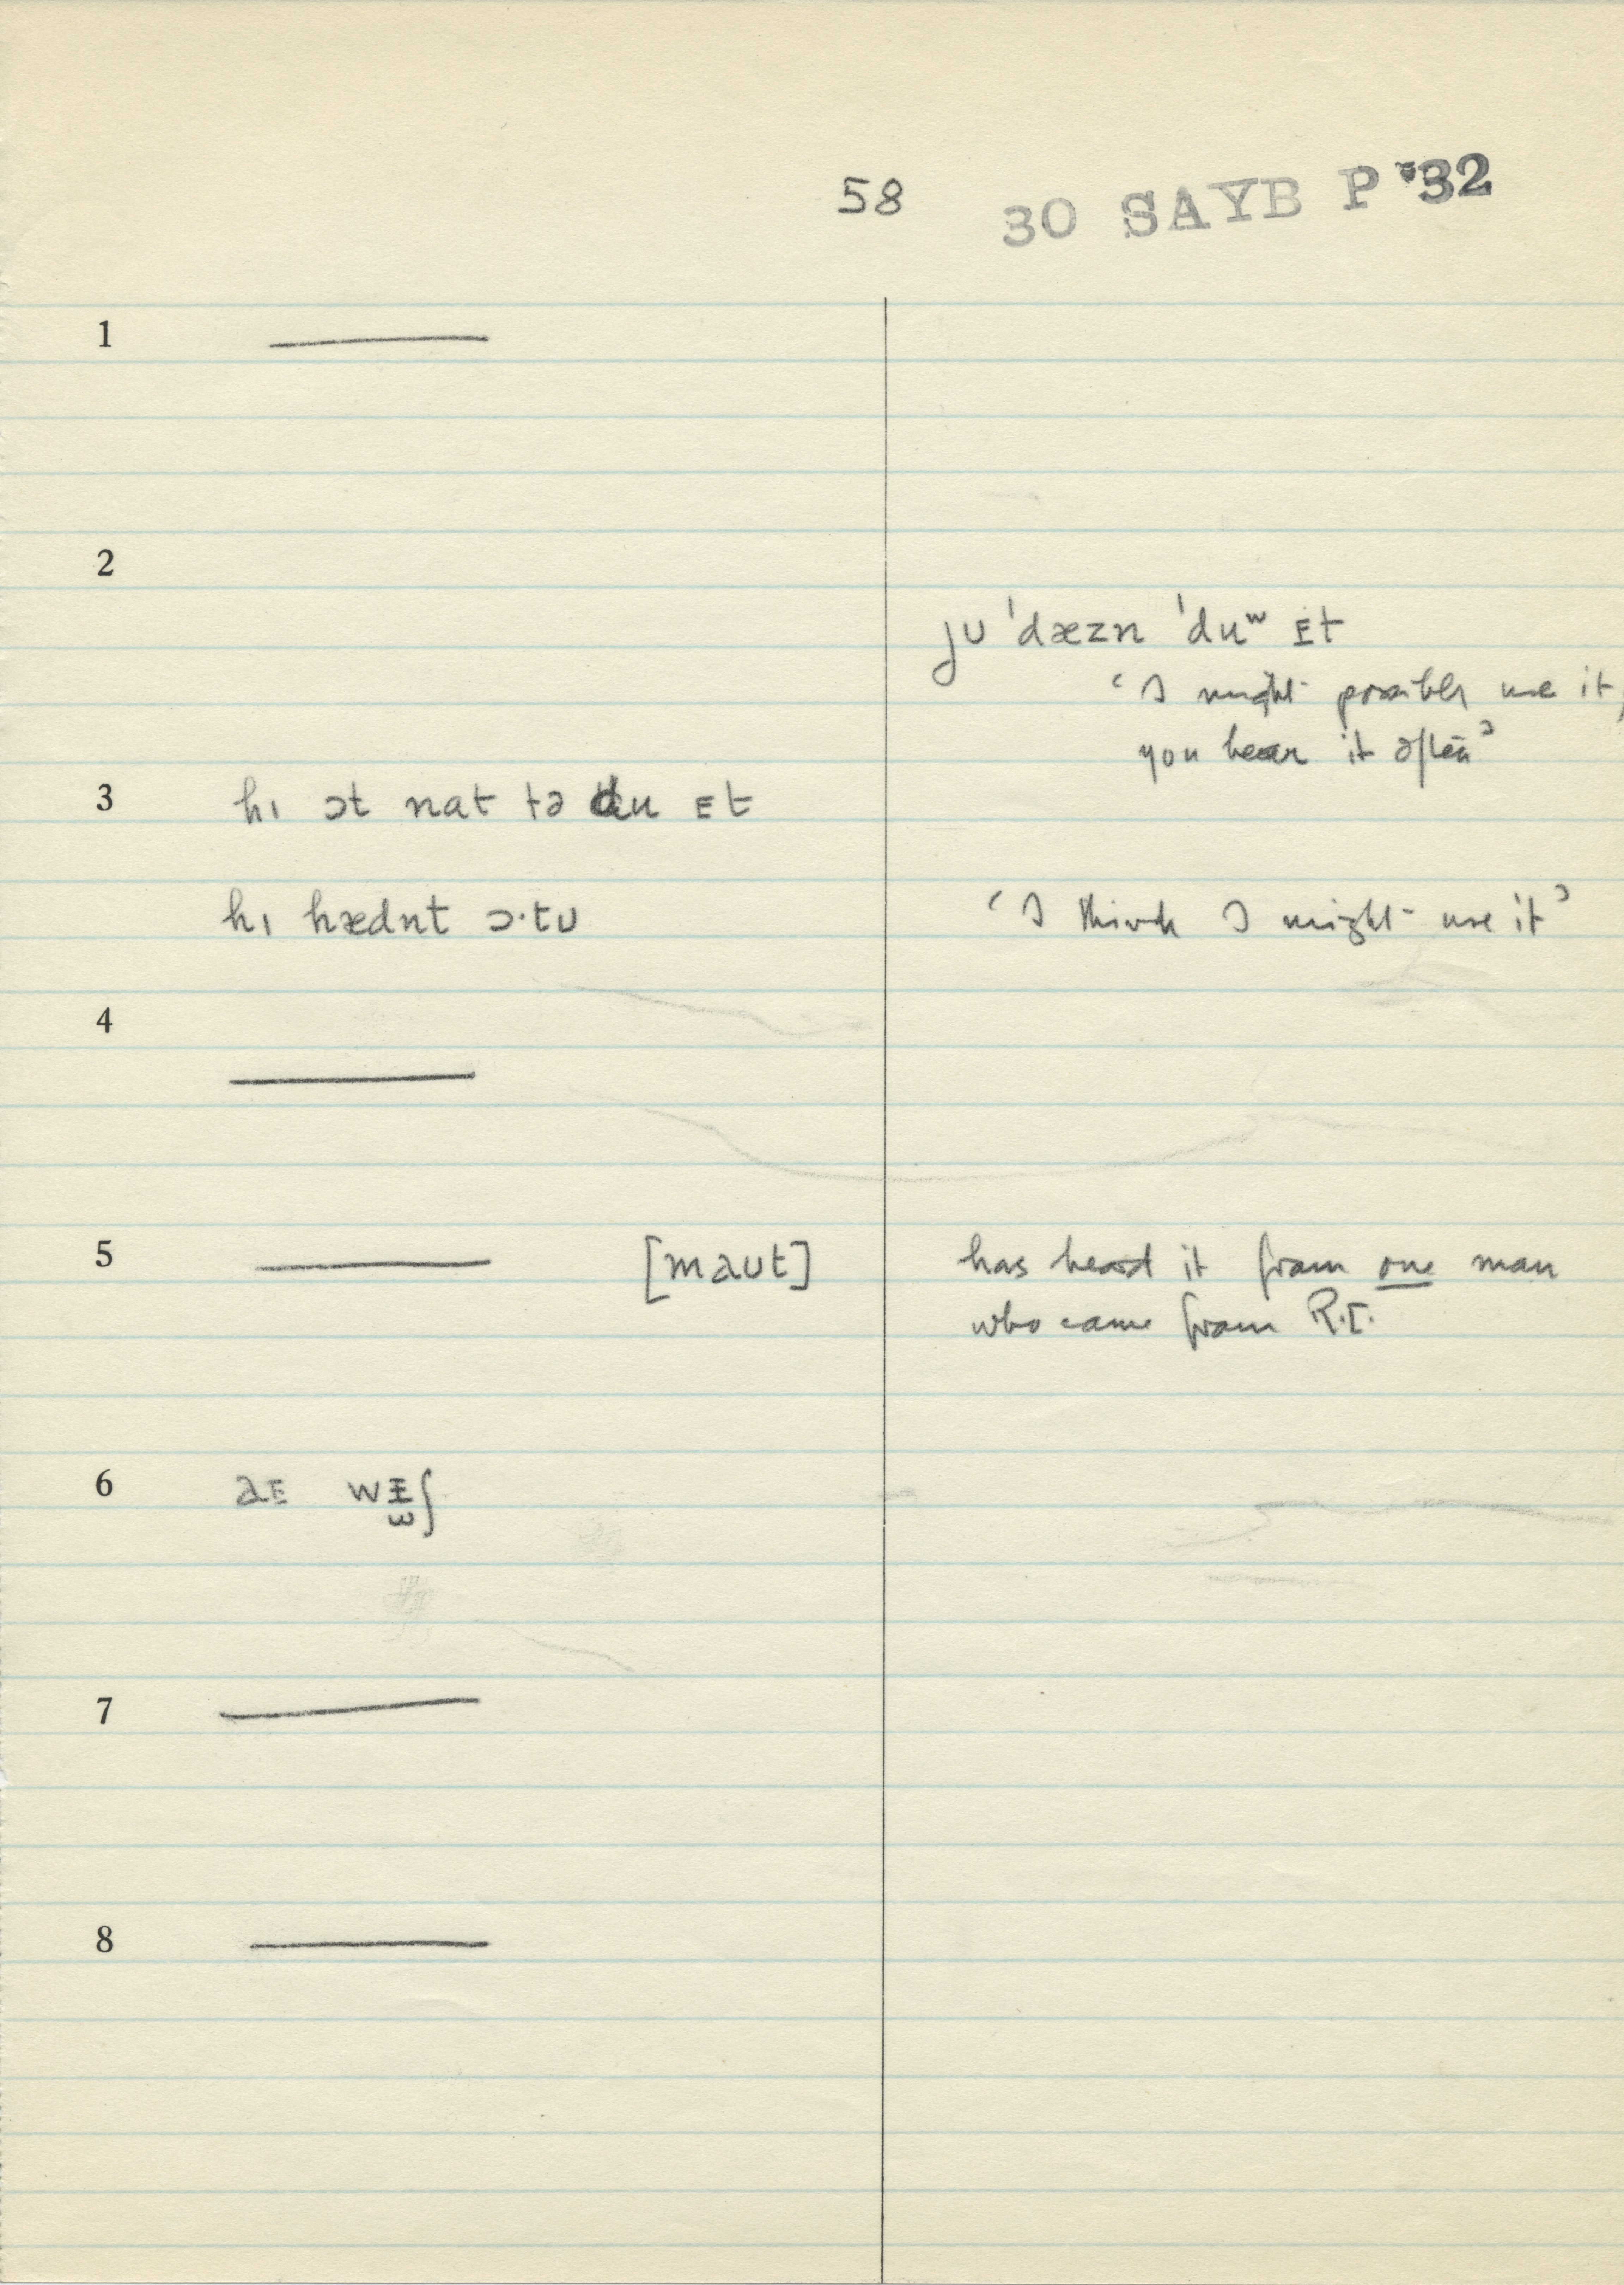 58 30 SAYB P '32
1 ———
2
jʊ ˈdæzn ˈduʷ ᴇt
‘I might possibly use it,
you hear it often’
3 hɪ ɔt nat tə du ᴇt
hɪ hædnt ɔ·tʊ ‘I think I might use it’
4 ———
5 ——— [maʊt] has heard it from one man
who came from R.I.
6 aᴇ
7 ———
8 ———